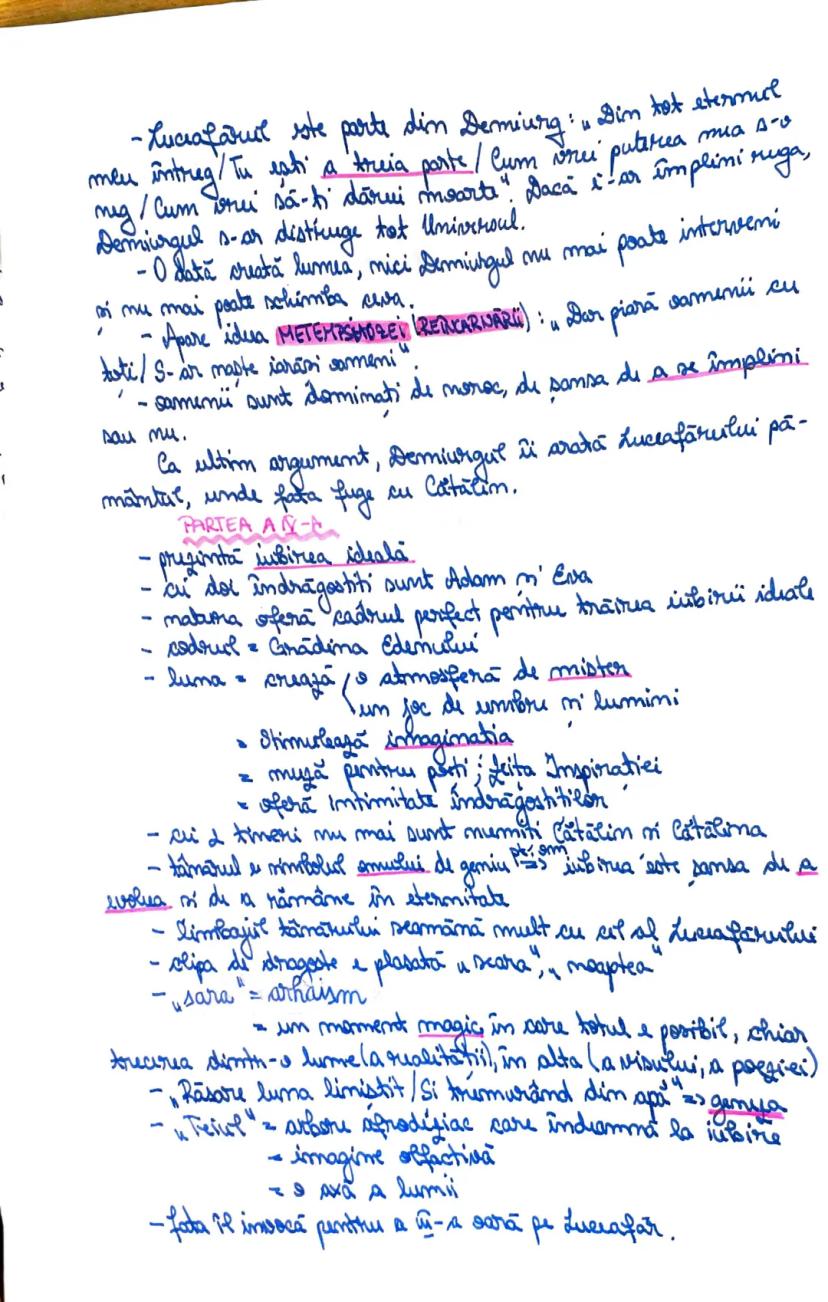 - Luceafărul este parte din Demiurg: „Din tot eternul
meu întreg/Tu ești a treia parte/Cum vrei puterea mea s-o
neg/Cum vrei să-ți dărui moarte". Dacă i-ar împlini ruga,
Demiurgul s-ar distruge tot Universul.
- O dată creată lumea, nici Demiurgul nu mai poate interveni
și nu mai poate schimba ceva.
- Apare ideea METEMPSIHOZEI (REÎNCARNĂRII): „Dar piară oamenii cu
toți/S-ar naște iarăși oameni".
- oamenii sunt dominați de noroc, de șansa de a se împlini
sau nu.
Ca ultim argument, Demiurgul îi arată Luceafărului pă-
mântul, unde fata fuge cu Cătălin.
PARTEA A IV-A
- prezintă iubirea ideală
- cei doi îndrăgostiți sunt Adam și Eva
- natura oferă cadrul perfect pentru trăirea iubirii ideale
- codrul = Grădina Edenului
- luna = crează / o atmosferă de mister
\ un joc de umbre și lumini
= Stimulează imaginația
= muză pentru poeți; zeița Inspirației
= oferă intimitate îndrăgostiților
- cei 2 tineri nu mai sunt numiți Cătălin și Cătălina
- tânărul e simbolul omului de geniu => pt. om iubirea este șansa de a
evolua și de a rămâne în eternitate
- limbajul tânărului seamănă mult cu cel al Luceafărului
- clipa de dragoste e plasată „seara", „noaptea"
- „sara" = arhaism
= un moment magic, în care totul e posibil, chiar
trecerea dintr-o lume (a realității), în alta (a visului, a poeziei)
- „Răsare luna liniștit/Și tremurând din apă" => geneza
- „Teiul" = arbore afrodiziac care îndeamnă la iubire
= imagine olfactivă
= o axă a lumii
- fata îl invocă pentru a III-a oară pe Luceafăr.